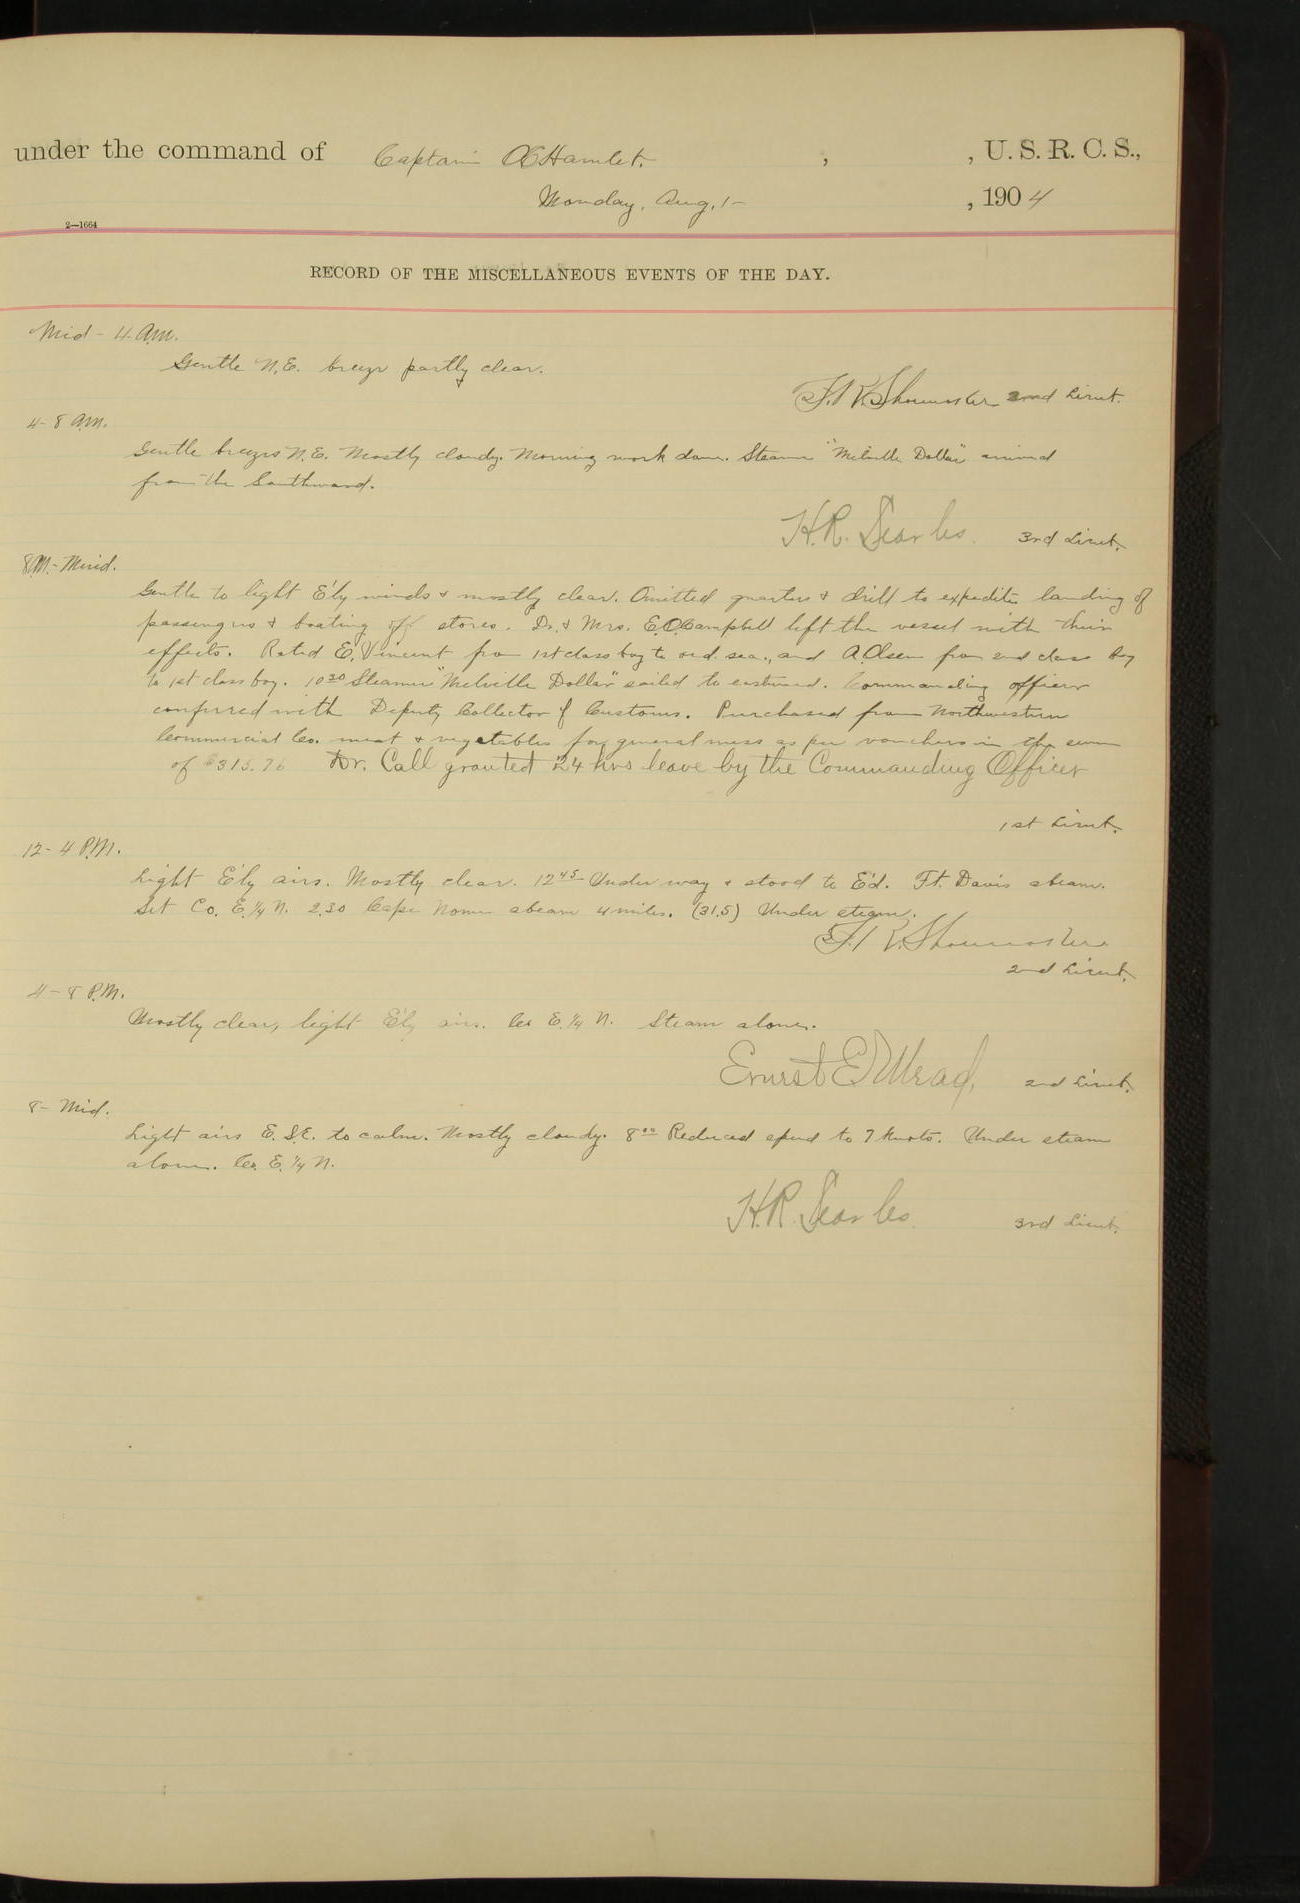 under the command of Captain O C Hamlet. , , U. S. R. C. S.,
Monday, Aug, 1- , 1904
2—1664
RECORD OF THE MISCELLANEOUS EVENTS OF THE DAY.
Mid - 4 A.M.
Gentle N.E. breeze partly clear.
2nd Lieut.
4- 8 A.M.
Gentle breezes N.E. Mostly cloudy. Morning work done. Steamer "Melville Dollar" arrived
from the Southward.
H.R. Searles. 3rd Lieut.
8 A.M. - Merid.
Gentle to light E'ly winds & mostly clear. Omitted quarters & drill to expedite landing of
passengers & boating off stores. Dr. & Mrs. E.O. Campbell left the vessel with their
effects. Rated E. Vincent from 1st class boy to ord. sea., and A. Olsen from 2nd class boy
to 1st class boy. 10 30 Steamer "Melville Dollar" sailed to eastward. Commanding officer
conferred with Deputy Collector of Customs. Purchased from Northwestern
Commercial Co. meat & vegetables for general mess as per vouchers in the sum
of $315.76 Dr. Call granted 24 hrs leave by the Commanding Officer
1st Lieut.
12- 4 P.M.
Light E'ly airs. Mostly clear. 12 45 Under way & stood to E'd. Ft. Davis abeam.
Set Co. E. 1/4 N. 2.30 Cape Nome abeam 4 miles. (31.5) Under steam.
2nd Lieut.
4 - 8 P.M.
Mostly clear, light E'ly airs. Co. E. 1/4 N. Steam alone.
Ernest E Mead, 2nd Lieut.
8- Mid.
Light airs E. S.E. to calm. Mostly cloudy. 8 00 Reduced speed to 7 knots. Under steam
alone. Co. E. 1/4 N.
H.R. Searles. 3rd Lieut.